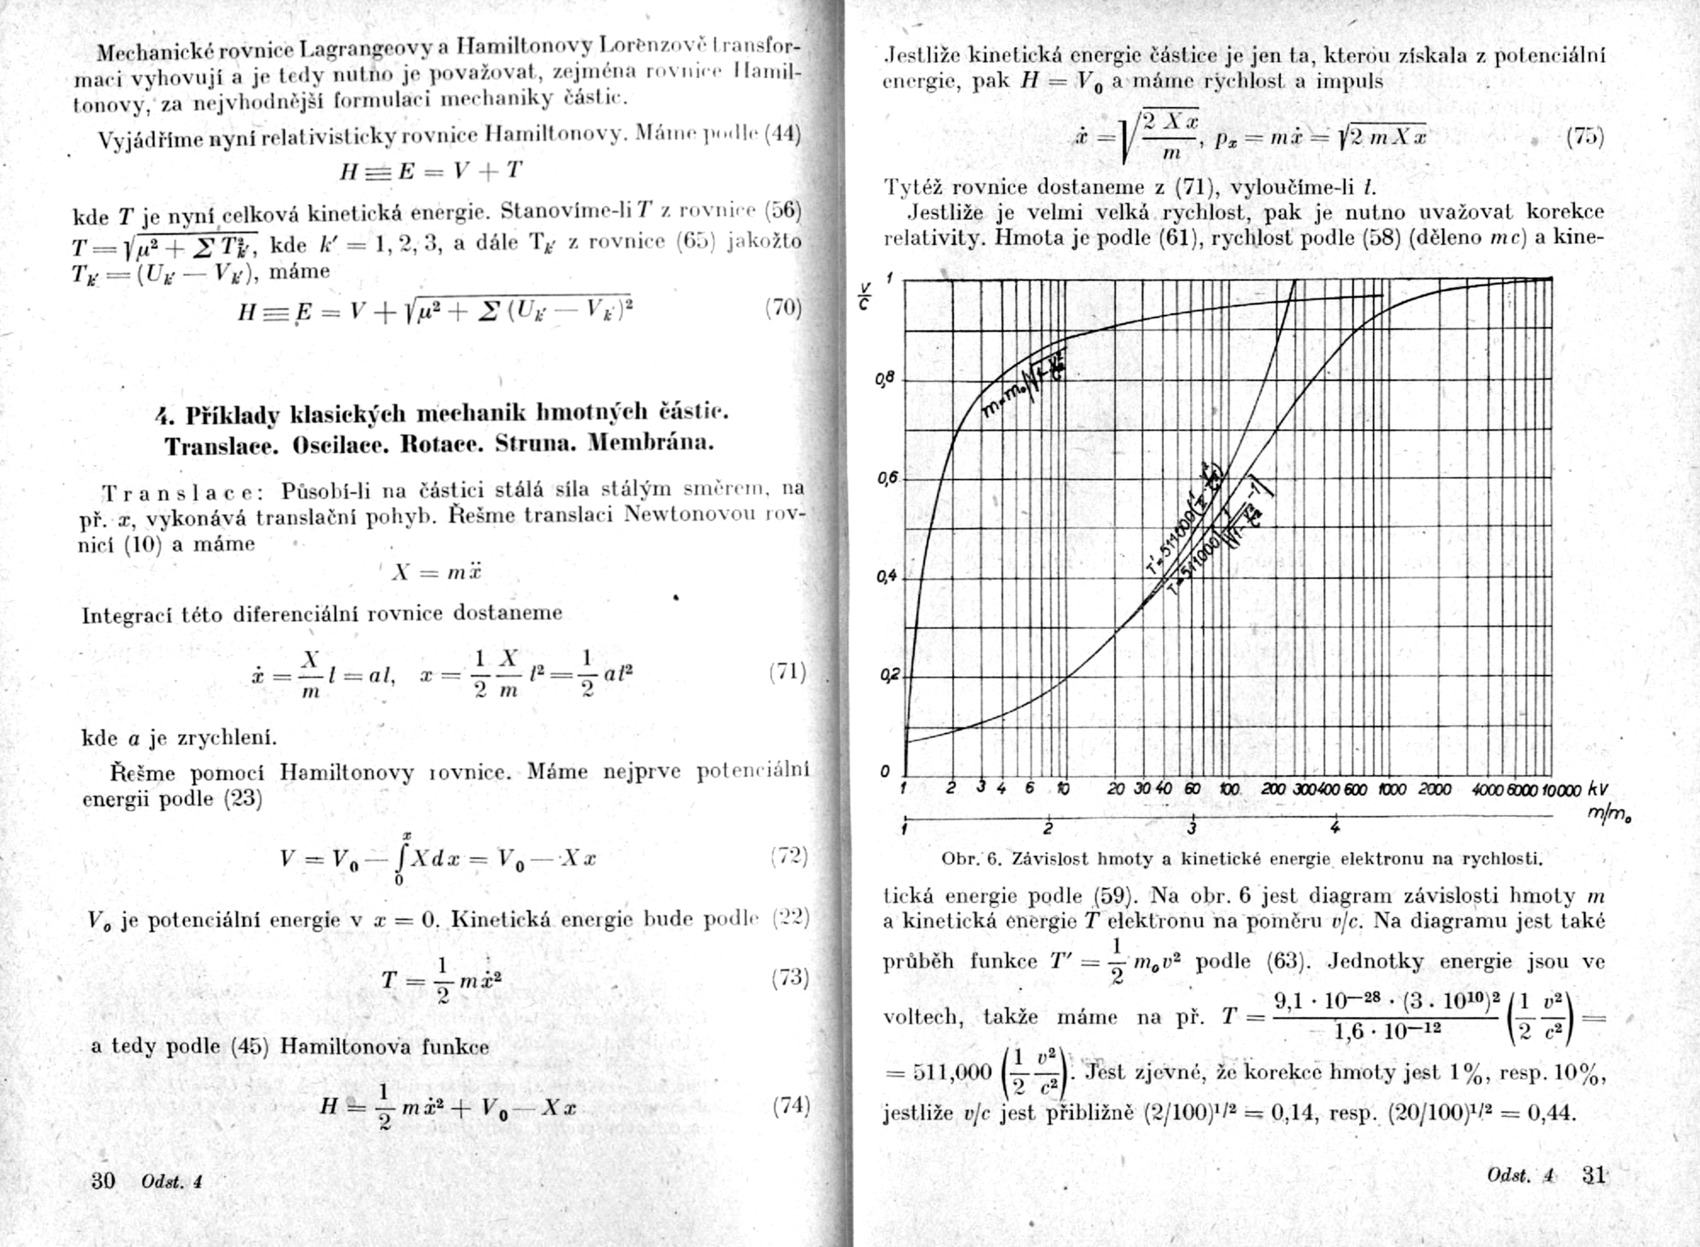 Mechanické rovnice Lagrangeovy a Hamiltonovy Lorenzově transfor-
maci vyhovují a je tedy nutno je považovat, zejména rovnice Hamil-
tonovy, za nejvhodnější formulaci mechaniky částic.
Vyjádříme nyní relativisticky rovnice Hamiltonovy. Máme podle (44)
H ≡ E = V + T
kde T je nyní celková kinetická energie. Stanovíme-li T z rovnice (56)
T = √μ² + Σ T²k′, kde k′ = 1, 2, 3, a dále Tk′ z rovnice (65) jakožto
Tk′ = (Uk′ — Vk′), máme
H ≡ E = V + √μ² + Σ (Uk′ — Vk′)² (70)
4. Příklady klasických mechanik hmotných částic.
Translace. Oscilace. Rotace. Struna. Membrána.
Translace: Působí-li na částici stálá síla stálým směrem, na
př. x, vykonává translační pohyb. Řešme translaci Newtonovou rov-
nicí (10) a máme
X = mẍ
Integrací této diferenciální rovnice dostaneme
ẋ = X/m t = at, x = 1/2 X/m t² = 1/2 at² (71)
kde a je zrychlení.
Řešme pomocí Hamiltonovy rovnice. Máme nejprve potenciální
energii podle (23)
V = V₀ — ∫₀ˣ X dx = V₀ — Xx (72)
V₀ je potenciální energie v x = 0. Kinetická energie bude podle (22)
T = 1/2 mẋ² (73)
a tedy podle (45) Hamiltonova funkce
H = 1/2 mẋ² + V₀ — Xx (74)
30 Odst. 4
Jestliže kinetická energie částice je jen ta, kterou získala z potenciální
energie, pak H = V₀ a máme rychlost a impuls
ẋ = √2 Xx/m, pₓ = mẋ = √2 mXx (75)
Tytéž rovnice dostaneme z (71), vyloučíme-li t.
Jestliže je velmi velká rychlost, pak je nutno uvažovat korekce
relativity. Hmota je podle (61), rychlost podle (58) (děleno mc) a kine-
v/c
1
0,8
0,6
0,4
0,2
0
m=m₀/√1-v²/c²
T′=511000(1/2 v²/c²)
T=511000(1/√1-v²/c² -1)
1 2 3 4 6 10 20 30 40 60 100 200 300 400 600 1000 2000 4000 6000 10000 kV
m/m₀
1 2 3 4
Obr. 6. Závislost hmoty a kinetické energie elektronu na rychlosti.
tická energie podle (59). Na obr. 6 jest diagram závislosti hmoty m
a kinetická energie T elektronu na poměru v/c. Na diagramu jest také
průběh funkce T′ = 1/2 m₀v² podle (63). Jednotky energie jsou ve
voltech, takže máme na př. T = 9,1 · 10—²⁸ · (3 . 10¹⁰)²/1,6 · 10—¹² (1/2 v²/c²) =
= 511,000 (1/2 v²/c²). Jest zjevné, že korekce hmoty jest 1%, resp. 10%,
jestliže v/c jest přibližně (2/100)¹/² = 0,14, resp. (20/100)¹/² = 0,44.
Odst. 4 31